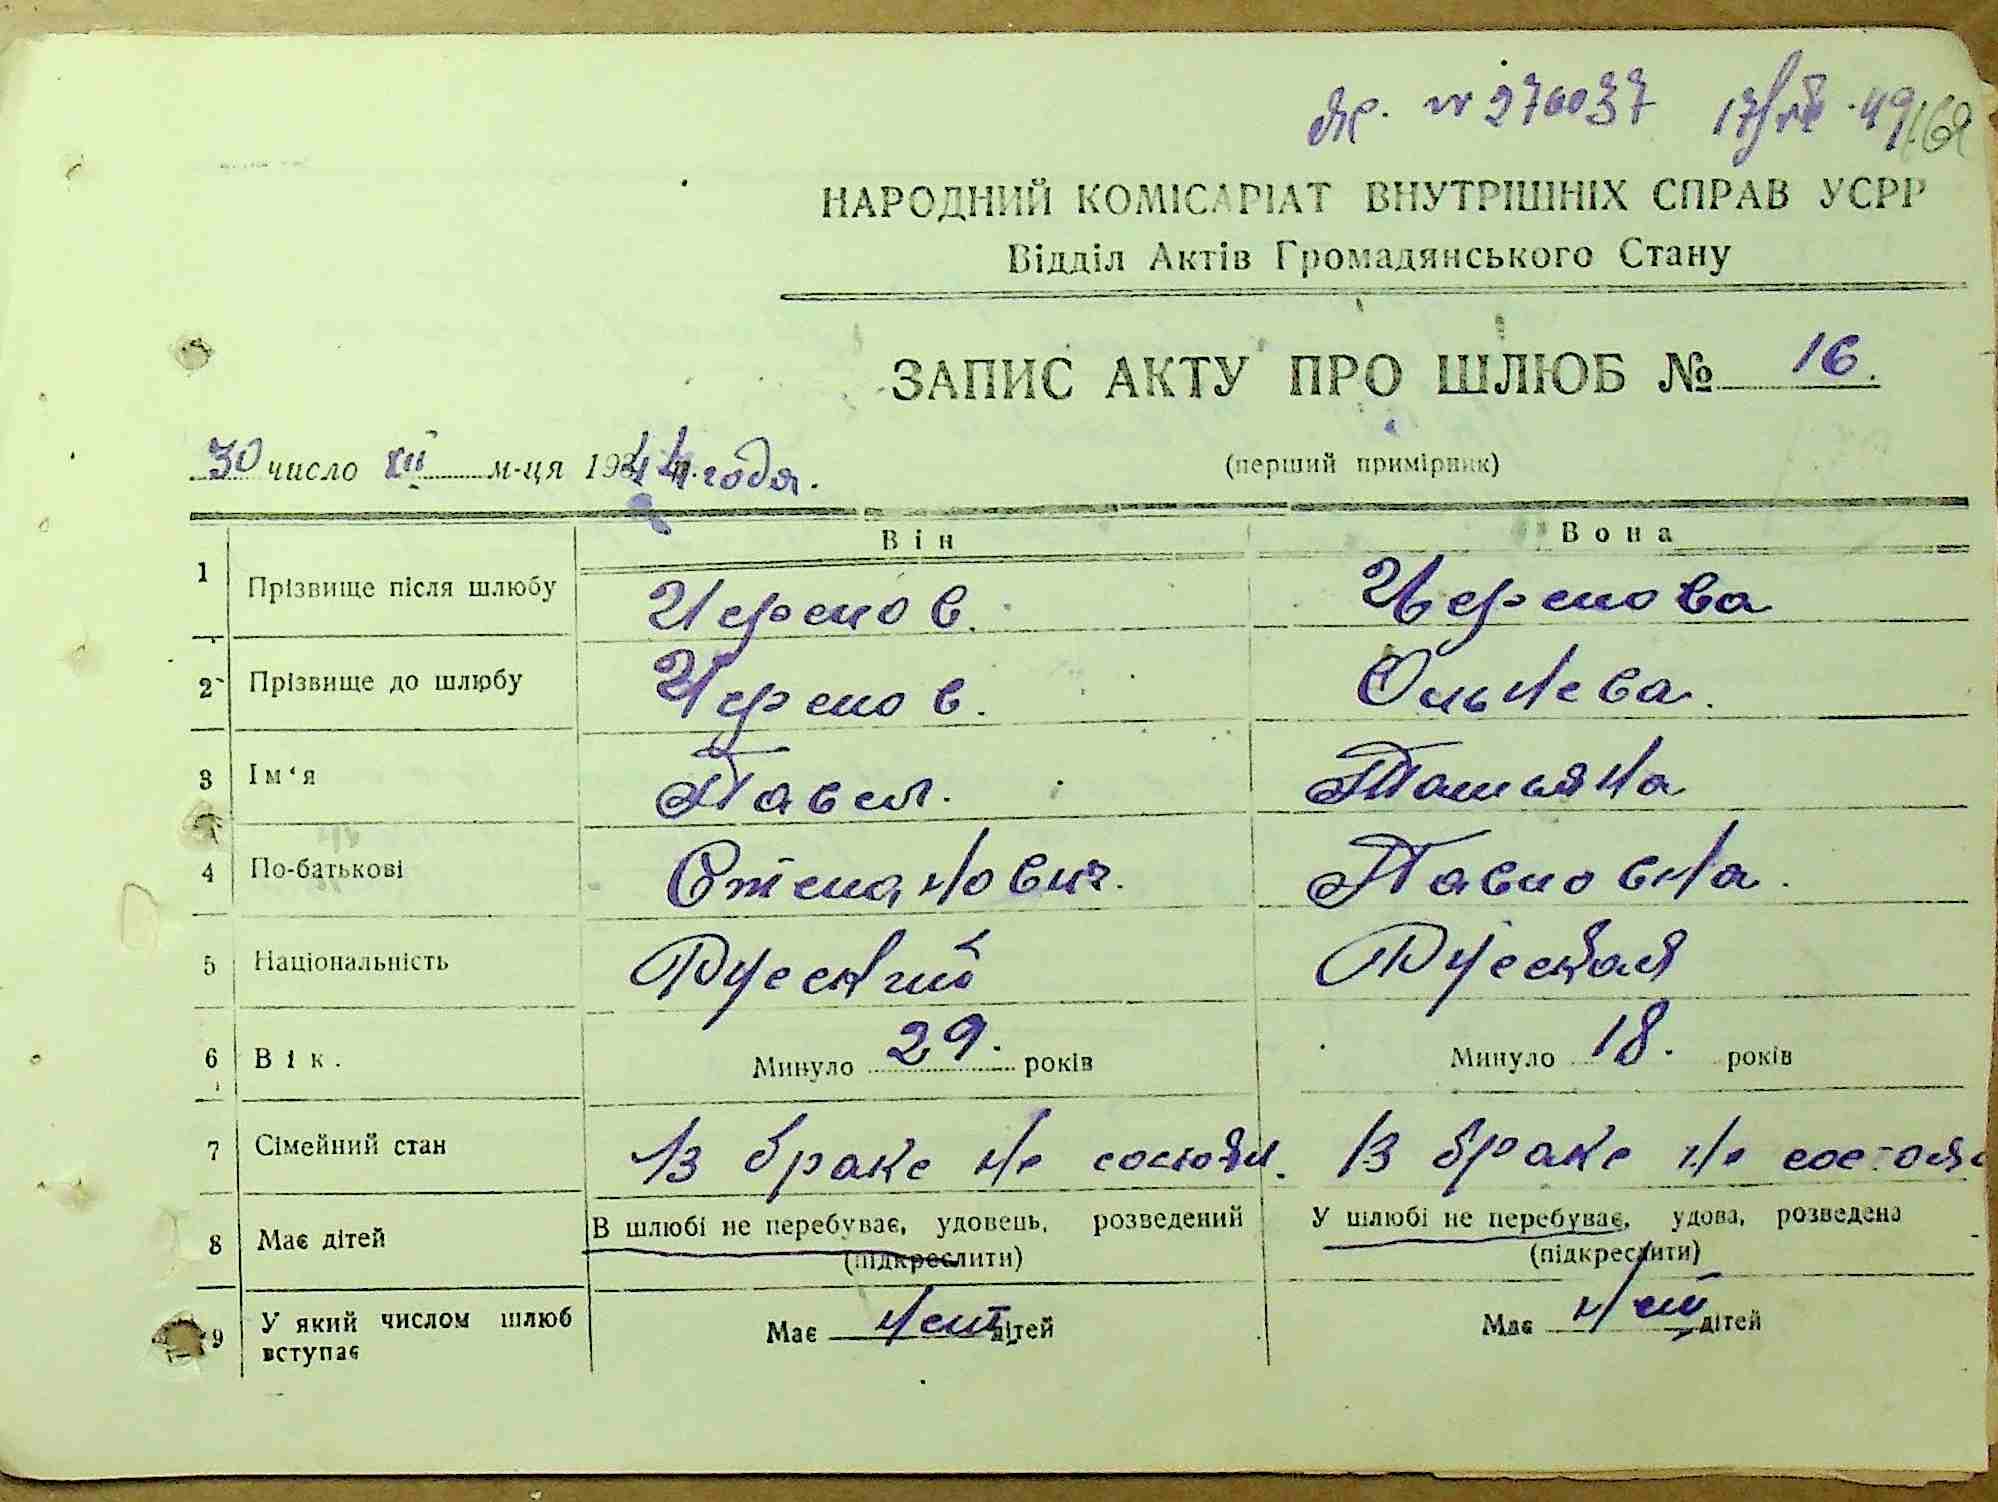 № 276037
НАРОДНИЙ КОМІСАРІАТ ВНУТРІШНІХ СПРАВ УСРР
Відділ Актів Громадянського Стану
ЗАПИС АКТУ ПРО ШЛЮБ № 16.
30 число XII м-ця 1944 года.
(перший примірник)
Він Вона
1 Прізвище після шлюбу Черепов. Черепова
2 Прізвище до шлюбу Черепов. Ольнева.
3 Ім'я Павел. Татьяна
4 По-батькові Степанович. Павловна.
5 Національність Русский Русская
6 Вік. Минуло 29. років Минуло 18. років
7 Сімейний стан В браке не состоял. В браке не состояла
8 Має дітей В шлюбі не перебуває, удовець, розведений У шлюбі не перебуває, удова, розведена
(підкреслити) (підкреслити)
9 У який числом шлюб вступає Має нет дітей Має нет дітей